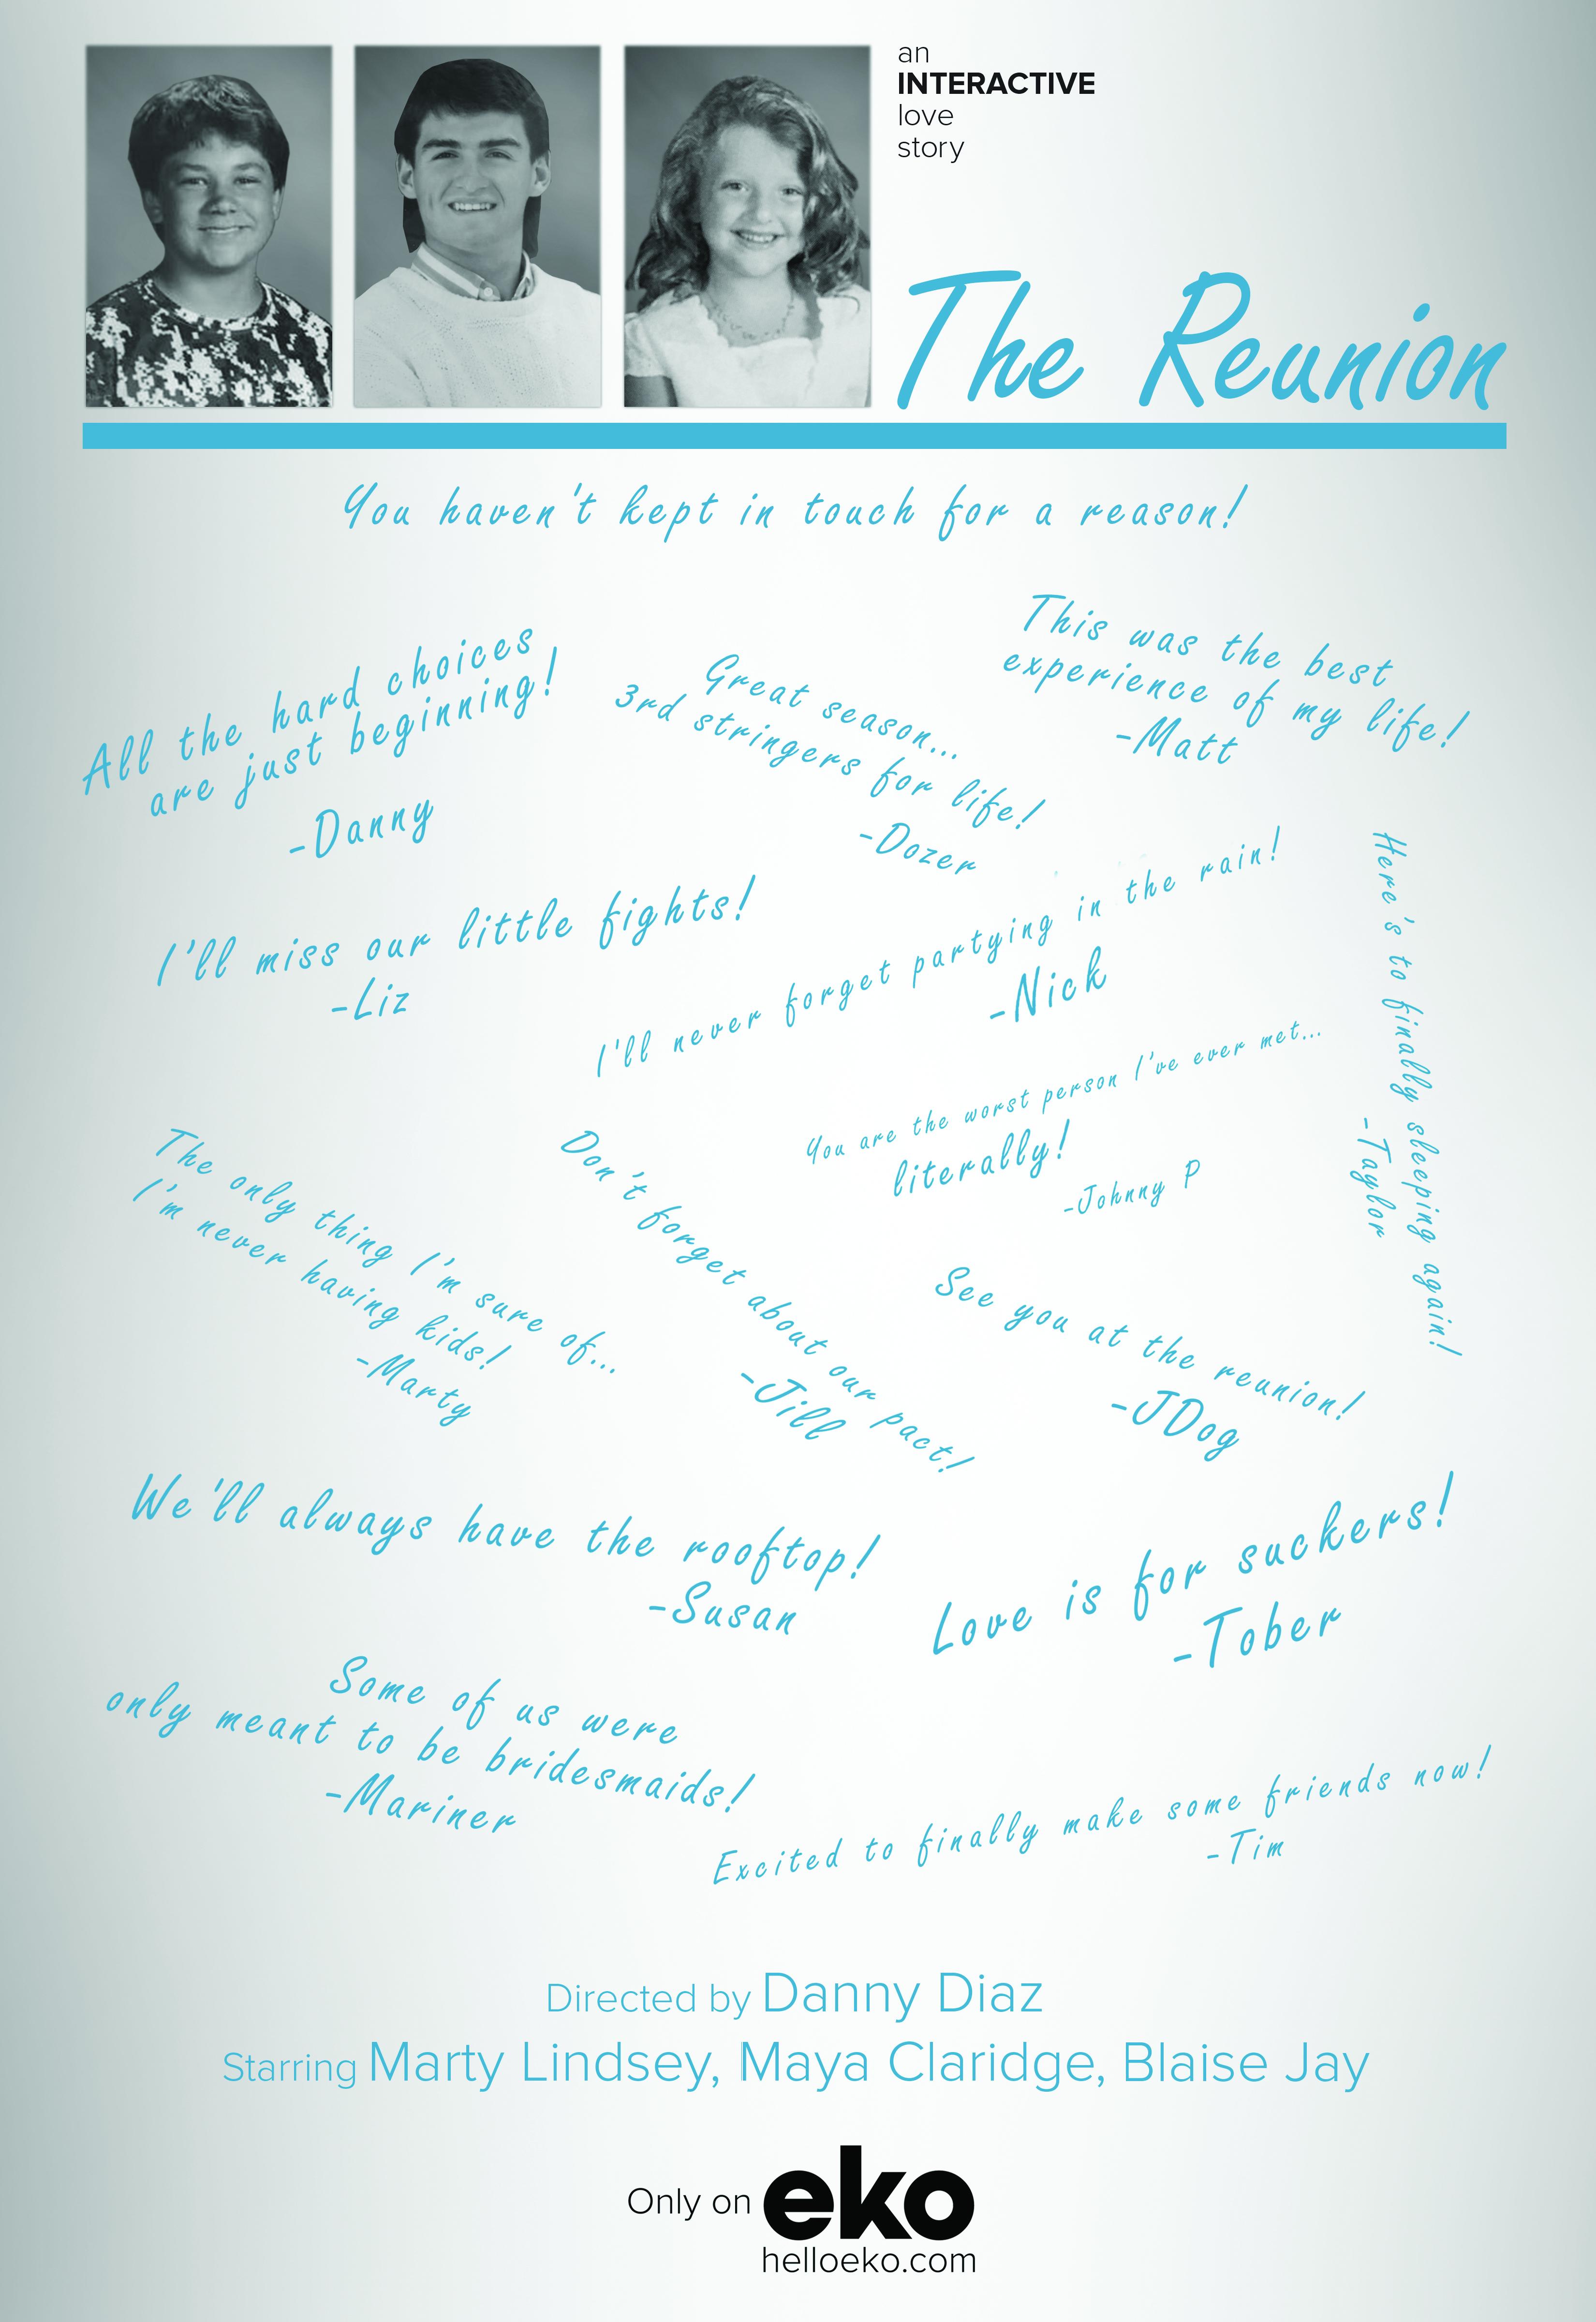 an
INTERACTIVE
love
story
The Reunion
You haven't kept in touch for a reason!
All the hard choices
are just beginning!
-Danny
Great season...
3rd stringers for life!
-Dozer
This was the best
experience of my life!
-Matt
I'll miss our little fights!
-Liz
I'll never forget partying in the rain!
-Nick
Here's to finally sleeping again!
-Taylor
You are the worst person I've ever met...
literally!
-Johnny P
The only thing I'm sure of...
I'm never having kids!
-Marty
Don't forget about our pact!
-Jill
See you at the reunion!
-JDog
We'll always have the rooftop!
-Susan
Love is for suckers!
-Tober
Some of us were
only meant to be bridesmaids!
-Mariner
Excited to finally make some friends now!
-Tim
Directed by Danny Diaz
Starring Marty Lindsey, Maya Claridge, Blaise Jay
Only on eko
helloeko.com